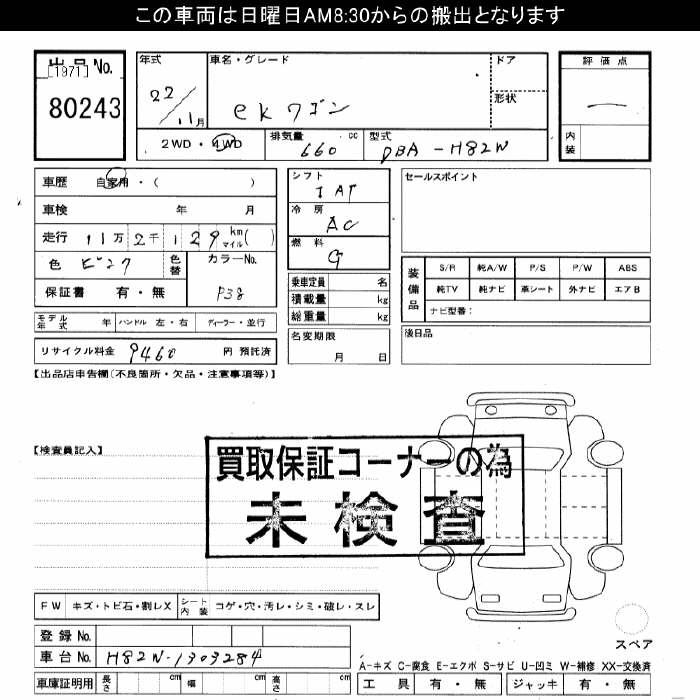 この車両は日曜日AM8:30からの搬出となります
出品No.
[1971]
80243
年式
22/11月
車名・グレード
ekワゴン
ドア
形状
評価点
内装
2WD・4WD
排気量 660 cc
型式 DBA-H82W
車歴 自家用・( )
車検 年 月
走行 11万2千129km マイル( )
色 ピンク 色替
カラーNo. P38
保証書 有・無
シフト IAT
冷房 AC
燃料 G
乗車定員 名
積載量 kg
総重量 kg
名変期限 月 日
セールスポイント
装備品
S/R 純A/W P/S P/W ABS
純TV 純ナビ 革シート 外ナビ エアB
ナビ型番:
後日品
モデル年式 年 ハンドル 左・右 ディーラー・並行
リサイクル料金 9460 円 預託済
【出品店申告欄(不良箇所・欠品・注意事項等)】
【検査員記入】
買取保証コーナーの為
未検査
FW キズ・トビ石・割レX シート内装 コゲ・穴・汚レ・シミ・破レ・スレ
スペア
登録No.
車台No. H82W-1303284
A-キズ C-腐食 E-エクボ S-サビ U-凹ミ W-補修 XX-交換済
車庫証明用 長さ cm 幅 cm 高さ cm
工具 有・無 ジャッキ 有・無